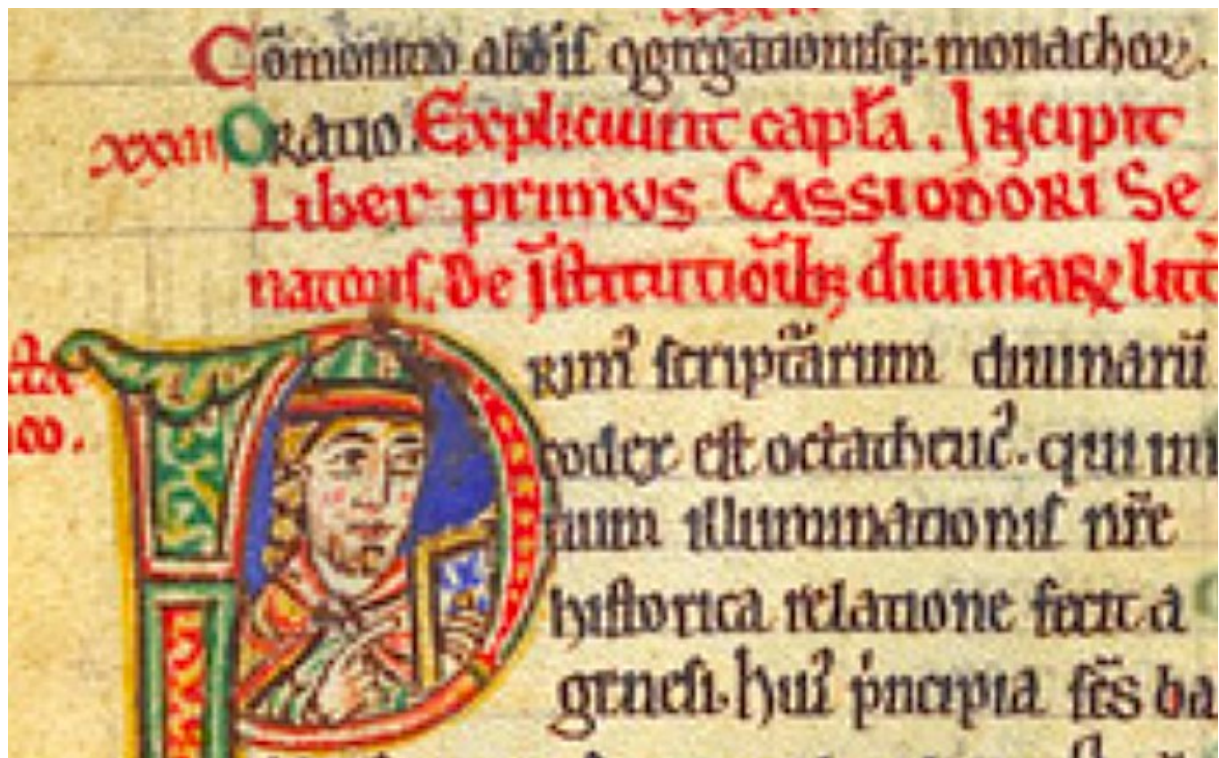 Cōmonitio abb̄is ɔgregationisq; monachoꝝ.
xxxiii Oratio. Expliciunt capľa. Incipit
Liber primus Cassiodori Se
natoris. De īstitutiōib; diuinaꝝ litt̄
Rim᾽ scriptūrarum diuinarū
codex est octatheuc᾽. qui ini
tium illuminationis nr̄e
historica relatione fecit a
genesi. hui᾽ pͥncipia sc̄s ba